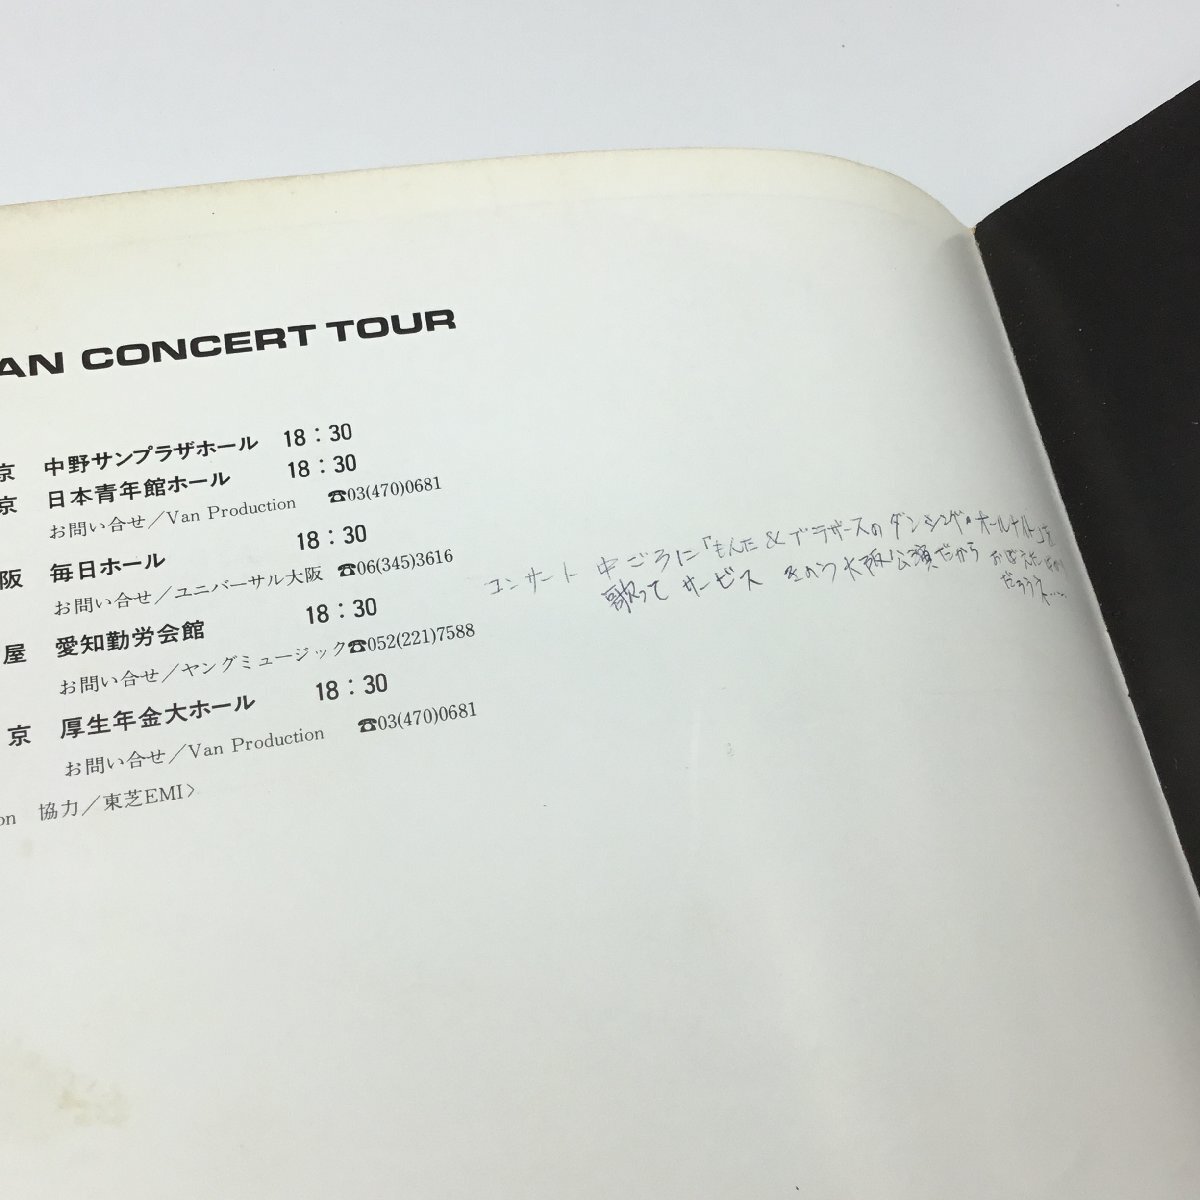 AN CONCERT TOUR
京 中野サンプラザホール 18：30
京 日本青年館ホール 18：30
お問い合せ／Van Production ☎03(470)0681
阪 毎日ホール 18：30
お問い合せ／ユニバーサル大阪 ☎06(345)3616
屋 愛知勤労会館 18：30
お問い合せ／ヤングミュージック☎052(221)7588
京 厚生年金大ホール 18：30
お問い合せ／Van Production ☎03(470)0681
on 協力／東芝EMI〉
コンサート 中ごろに「もんた＆ブラザースのダンシング・オールナイト」を
歌って サービス きのう大阪公演だから おぼえた
だろうえ……